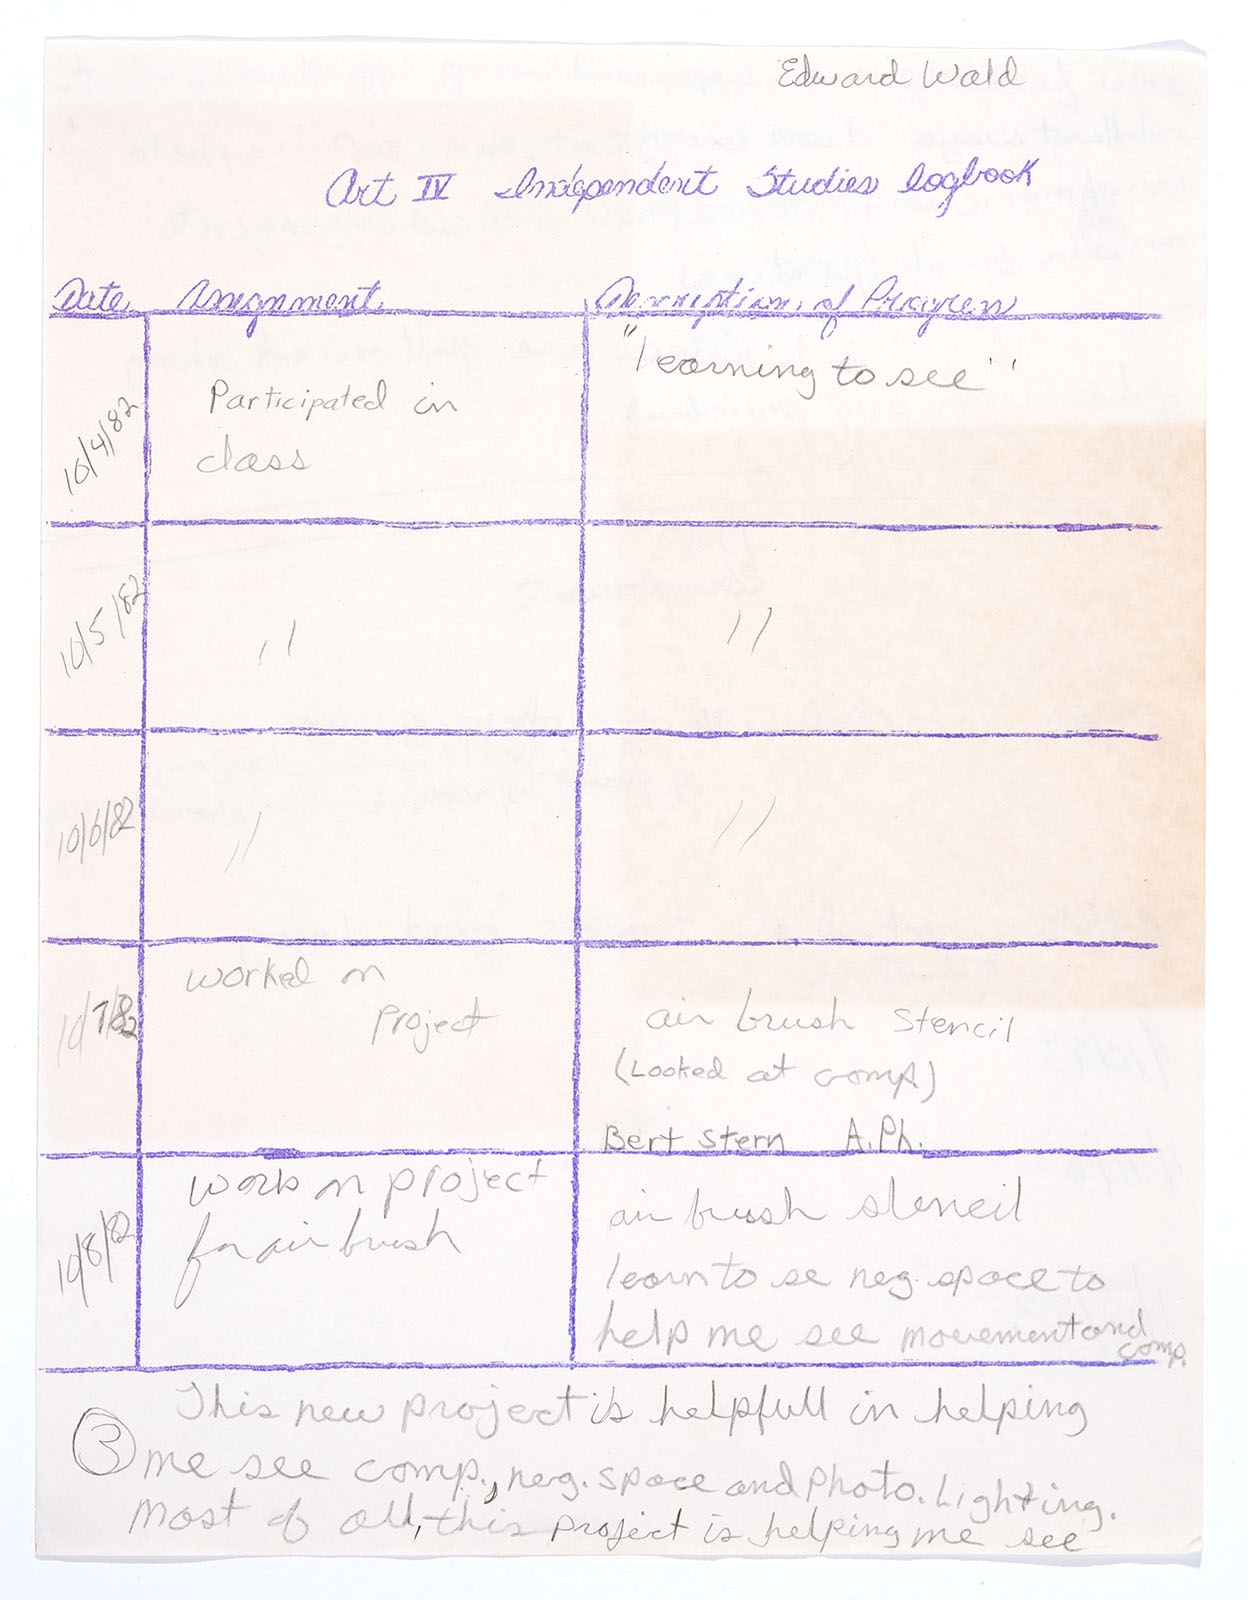 Edward Wald
Art IV Independent Studies Logbook
Date Assignment Description of Progress
10/4/82
Participated in
class
"learning to see"
10/5/82
"
"
10/6/82
"
"
10/7/82
worked on
project
air brush stencil
(Looked at comp)
Bert Stern A.Ph.
10/8/82
work on project
for air brush
air brush stencil
learn to se neg. space to
help me see movement and
comp.
This new project is helpfull in helping
3 me see comp., neg. space and photo. Lighting.
Most of all, this project is helping me see